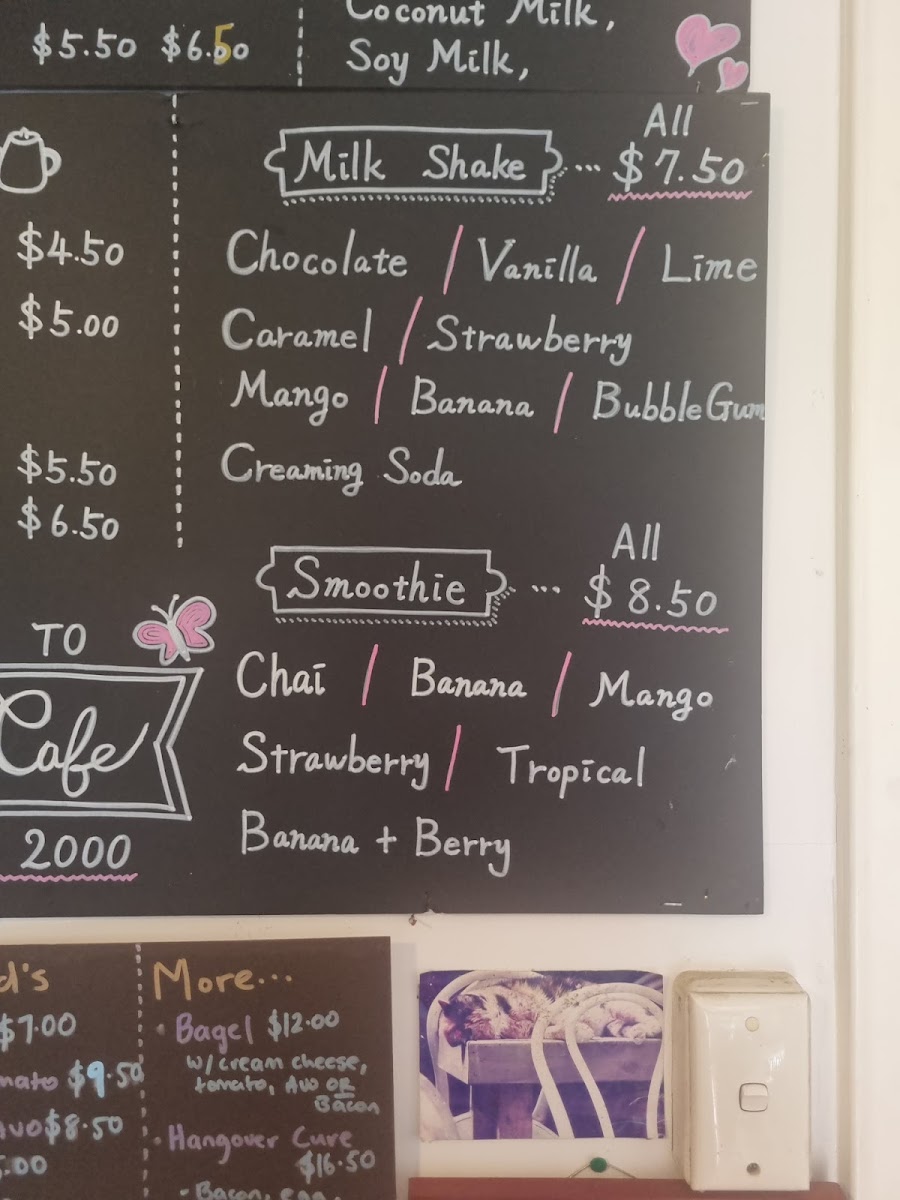 $5.50 $6.50
Coconut Milk,
Soy Milk,
$4.50
$5.00
$5.50
$6.50
TO
Cafe
2000
Milk Shake ... All $7.50
Chocolate / Vanilla / Lime
Caramel / Strawberry
Mango / Banana / BubbleGum
Creaming Soda
Smoothie ... All $8.50
Chai / Banana / Mango
Strawberry / Tropical
Banana + Berry
d's
$7.00
$9.50
$8.50
.00
More...
• Bagel $12.00
w/cream cheese,
tomato, Avo OR
Bacon
• Hangover Cure
$16.50
- Bacon, egg,